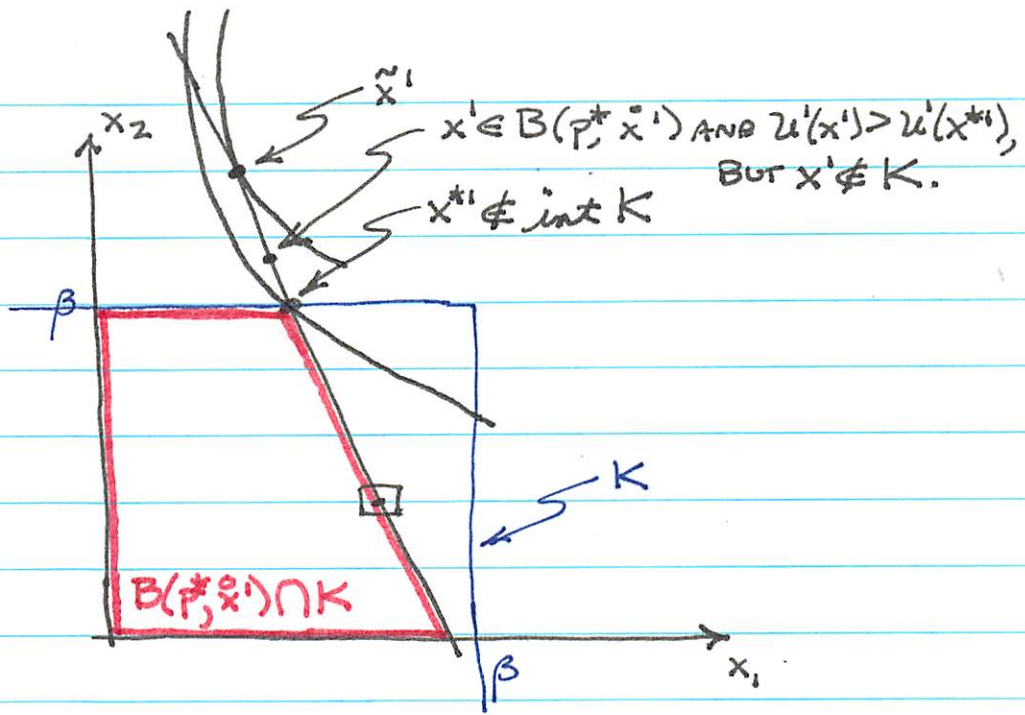 x̃¹
x₂
x¹ ∈ B(p*, x̊¹) AND u¹(x¹) > u¹(x*¹),
BUT x¹ ∉ K.
x*¹ ∉ int K
β
K
B(p*, x̊¹) ∩ K
x₁
β